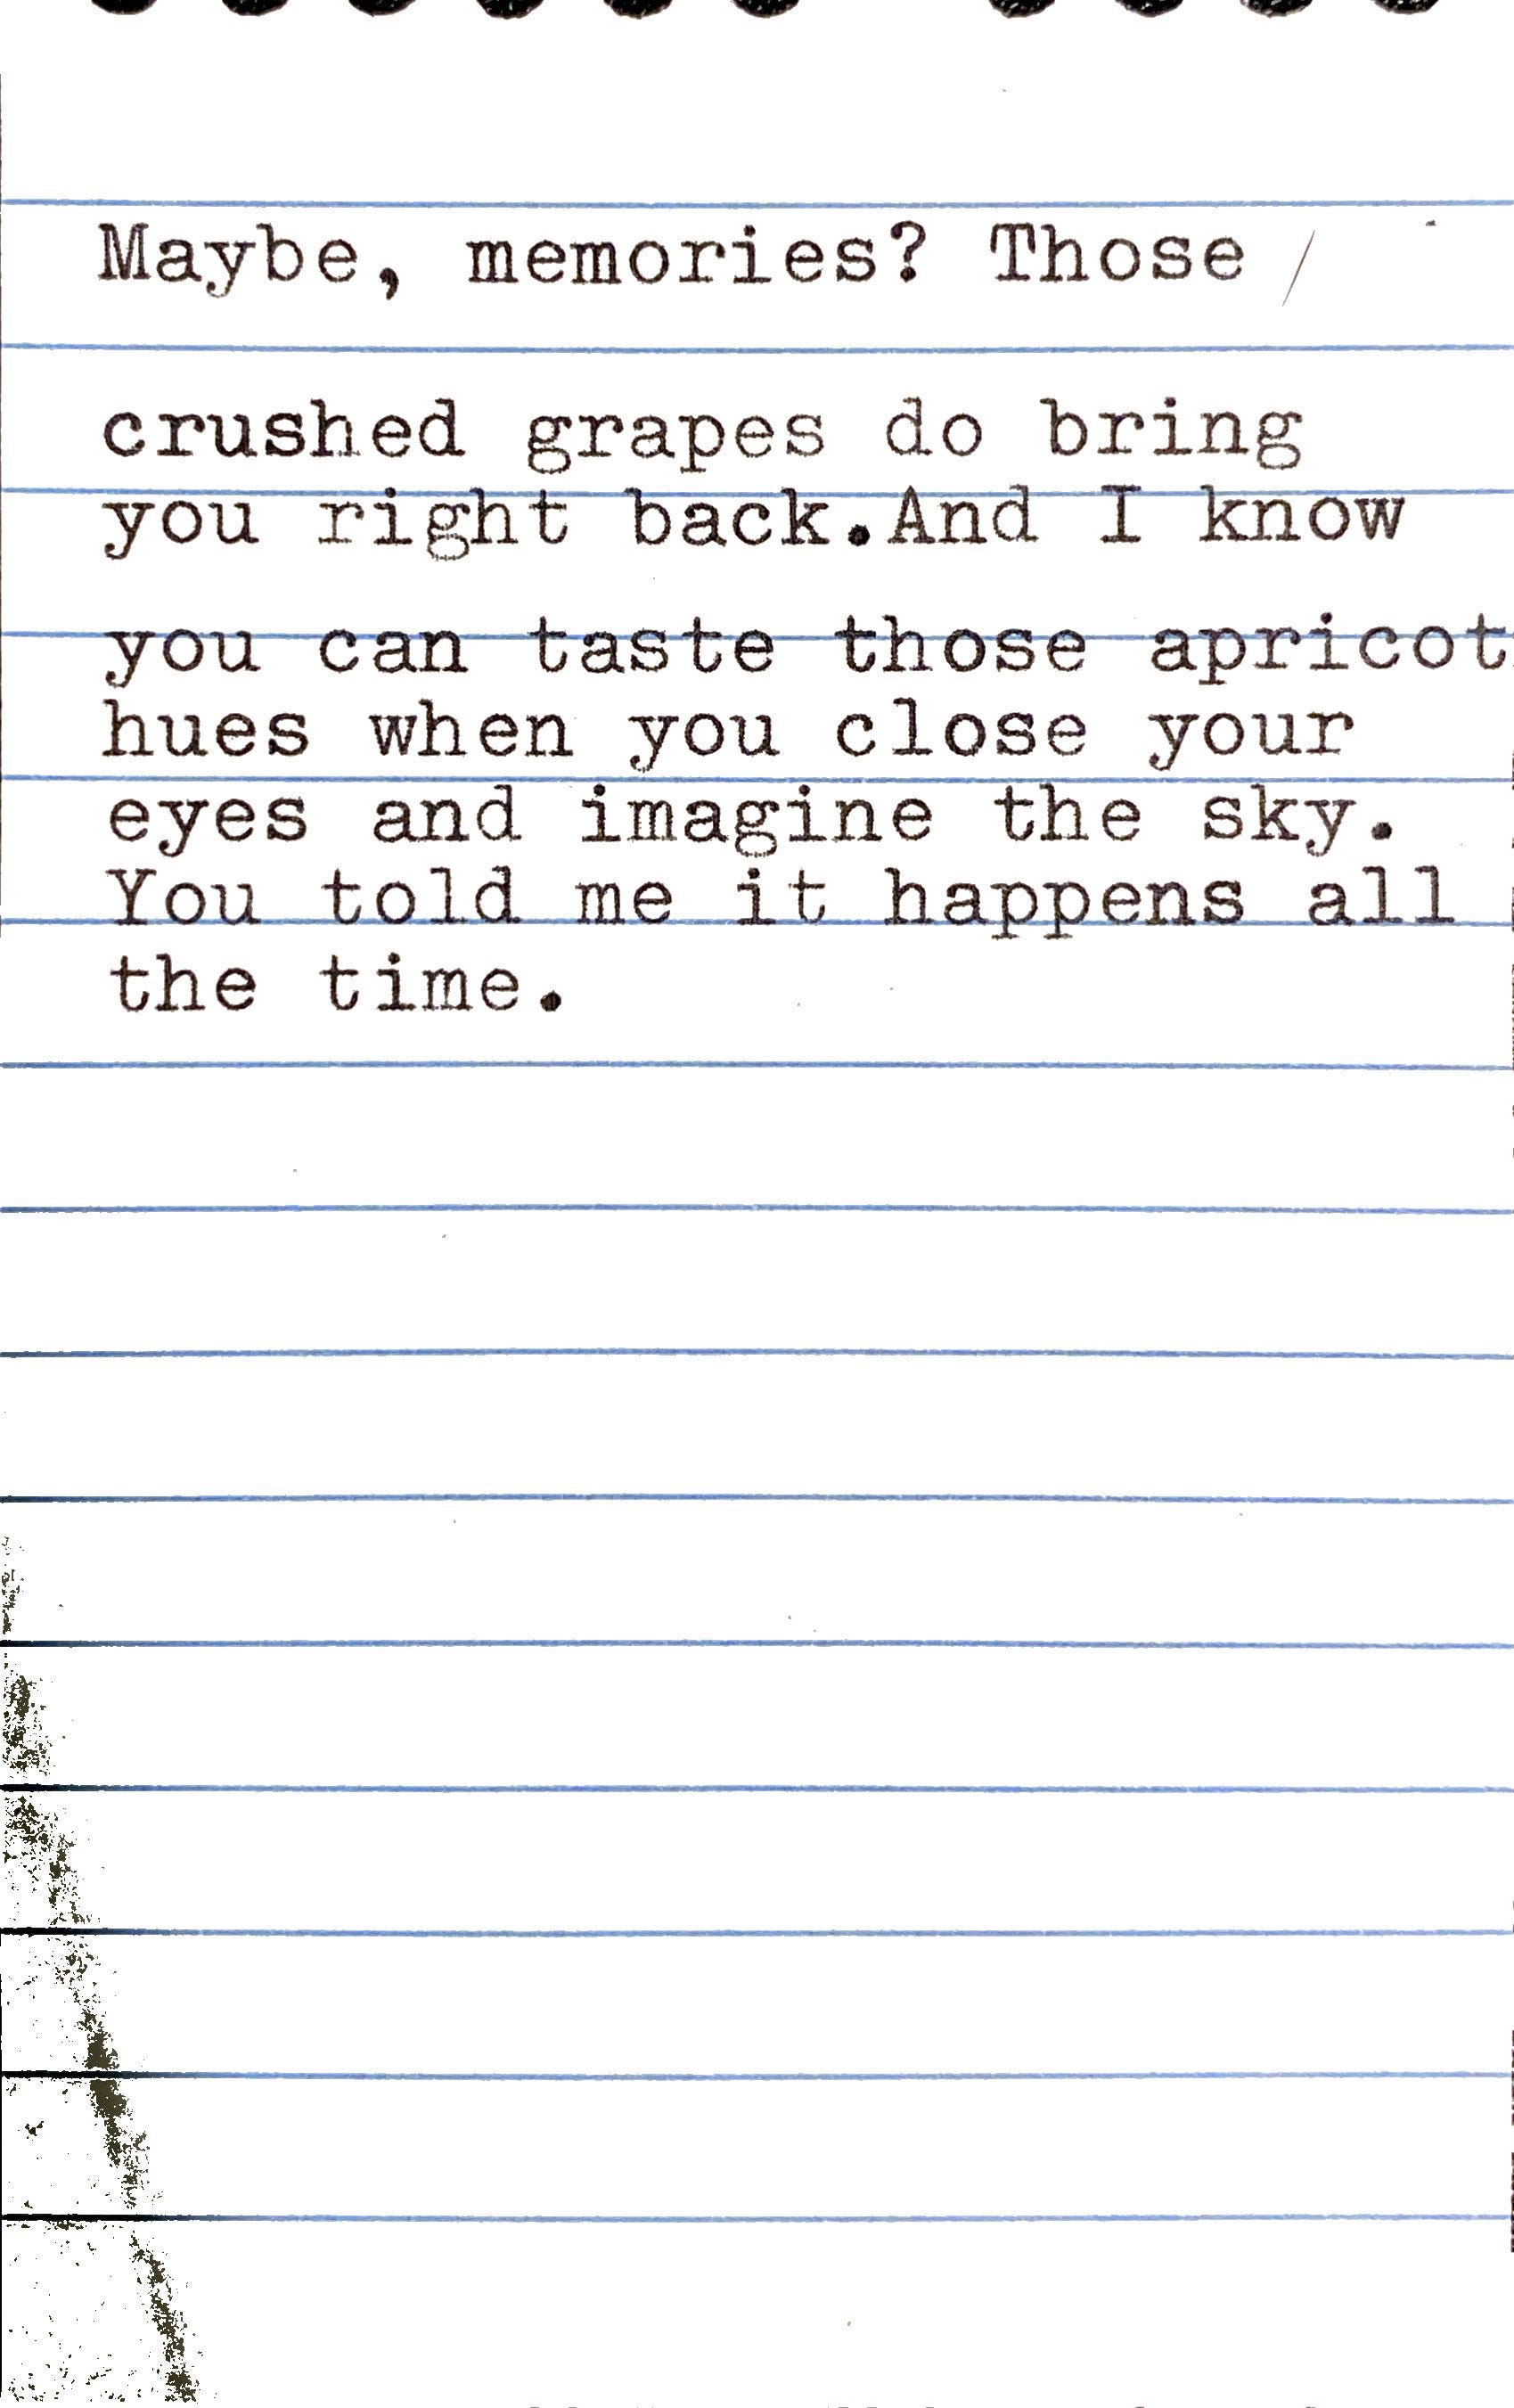 Maybe, memories? Those
crushed grapes do bring
you right back.And I know
you can taste those apricot
hues when you close your
eyes and imagine the sky.
You told me it happens all
the time.